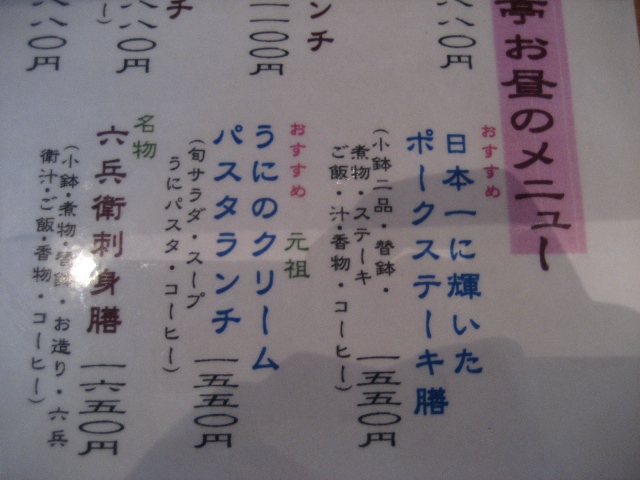 亭お昼のメニュー
八〇円
ンチ
一一〇〇円
チ
八〇円
八〇円
おすすめ
日本一に輝いた
ポークステーキ膳
(小鉢二品・替鉢・
煮物・ステーキ
ご飯・汁・香物・コーヒー)
一五五〇円
おすすめ 元祖
うにのクリーム
パスタランチ
(旬サラダ・スープ
うにパスタ・コーヒー)
一五五〇円
名物
六兵衛刺身膳
(小鉢・煮物・替鉢・お造り・六兵
衛汁・ご飯・香物・コーヒー)
一六五〇円